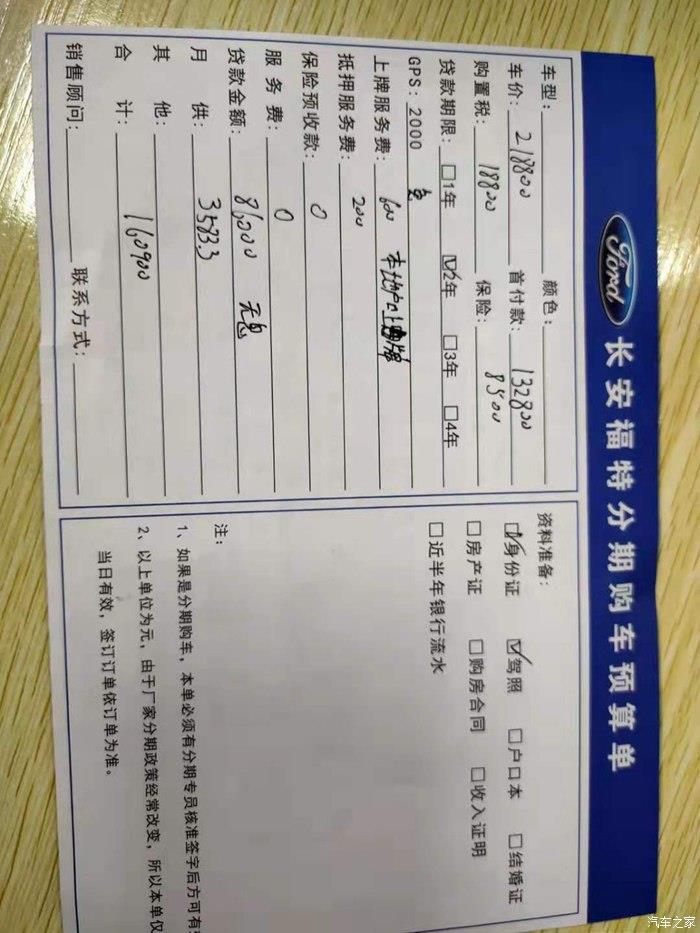 Ford 长安福特分期购车预算单
车型： 颜色：
车价：218800 首付款：132800
购置税：18800 保险：8500
贷款期限：□1年 ☑2年 □3年 □4年
GPS：2000
上牌服务费：600 本地户上牌
抵押服务费：200
保险预收款：0
服务费：0
贷款金额：86000 无息
月供：3583.3
其他：
合计：160900
销售顾问： 联系方式：
资料准备：
☑身份证 ☑驾照 □户口本 □结婚证
□房产证 □购房合同 □收入证明
□近半年银行流水
注：
1、如果是分期购车，本单必须有分期专员核准签字后方可有
2、以上单位为元，由于厂家分期政策经常改变，所以本单仅
当日有效，签订订单依订单为准。
汽车之家